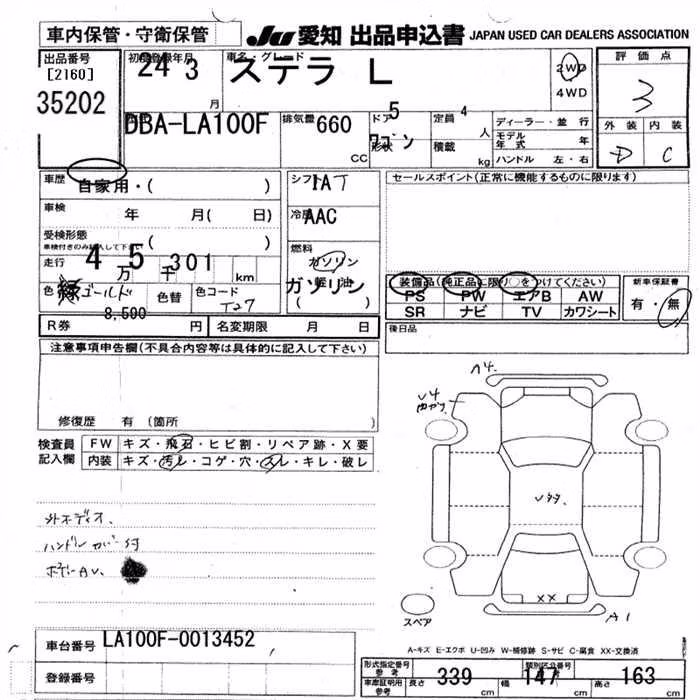 車内保管・守衛保管
JU 愛知 出品申込書 JAPAN USED CAR DEALERS ASSOCIATION
出品番号
[2160]
35202
初度登録年月
24 3 月
車名・グレード
ステラ L
2WD
4WD
評価点
3
外装 内装
D C
DBA-LA100F
排気量 660 CC
ドア 5
形状 ワゴン
定員 4 人
積載 kg
ディーラー・並行
モデル年式 年
ハンドル 左・右
車歴 自家用・( )
車検 年 月( 日)
受検形態
車検付きのみ記入して下さい ( )
走行 4万 5千 301 km
色 緑 ゴールド
色替
色コード T27
シフト IAT
冷房 AAC
燃料
ガソリン
軽油
ガソリン
( )
セールスポイント(正常に機能するものに限ります)
装備品(純正品に限り○をつけてください)
PS PW エアB AW
SR ナビ TV カワシート
新車保証書
有・無
後日品
R券 8,590 円
名変期限 月 日
注意事項申告欄(不具合内容等は具体的に記入して下さい)
修復歴 有 (箇所
検査員記入欄
FW キズ・飛石・ヒビ割・リペア跡・X要
内装 キズ・汚レ・コゲ・穴・スレ・キレ・破レ
外ホディオ.
ハンドルカバー付
ボデーAU.
U4
XX
A1
スペア
A-キズ E-エクボ U-凹み W-補修跡 S-サビ C-腐食 XX-交換済
車台番号 LA100F-0013452
登録番号
形式指定番号 参考
類別区分番号
車庫証明用 参考
長さ 339 cm
幅 147 cm
高さ 163 cm